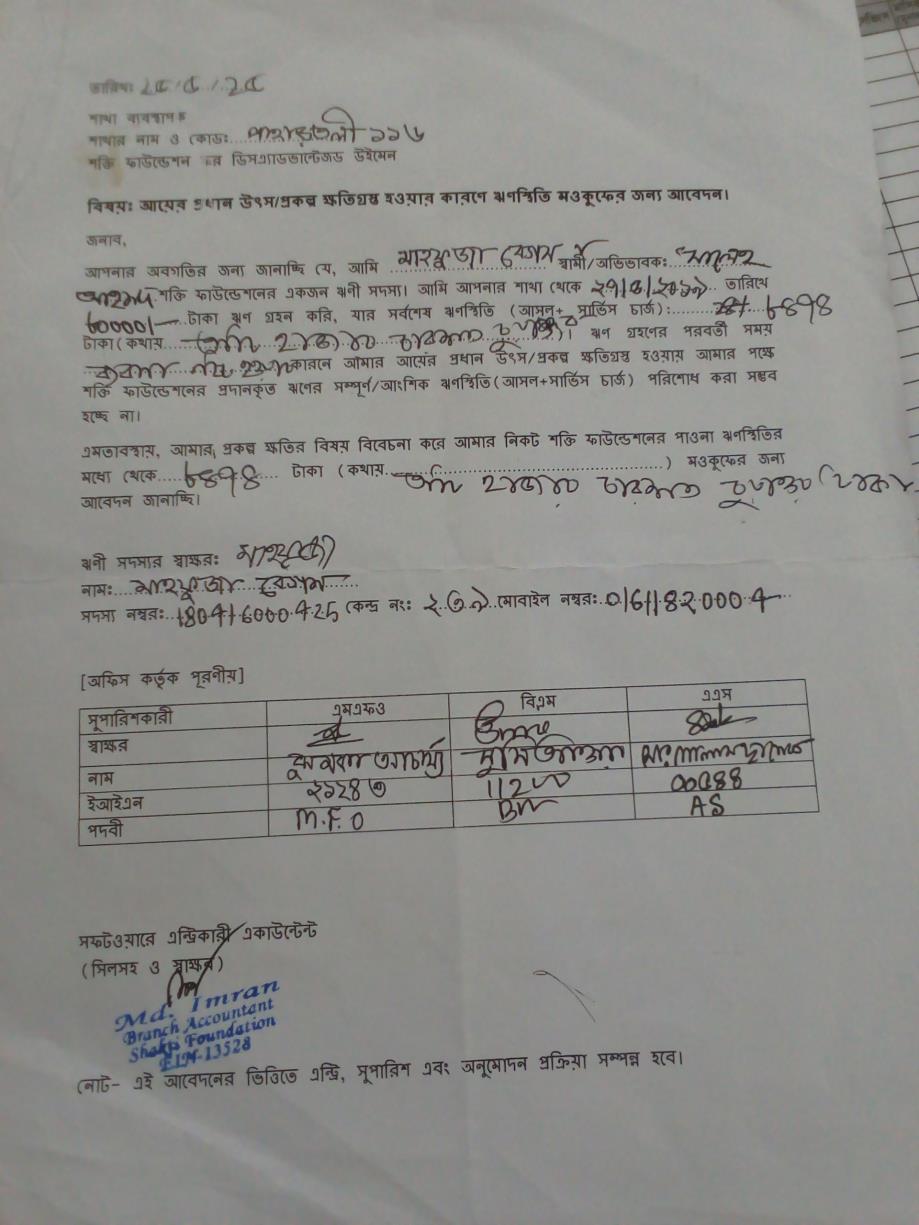 তারিখঃ ২৫/৫/২৫
শাখা ব্যবস্থাপক
শাখার নাম ও কোডঃ পাহাড়তলী ১১৬
শক্তি ফাউন্ডেশন ফর ডিসএ্যাডভান্টেজড উইমেন
বিষয়ঃ আয়ের প্রধান উৎস/প্রকল্প ক্ষতিগ্রস্ত হওয়ার কারণে ঋণস্থিতি মওকুফের জন্য আবেদন।
জনাব,
আপনার অবগতির জন্য জানাচ্ছি যে, আমি মাহফুজা বেগম স্বামী/অভিভাবকঃ
আহমদ শক্তি ফাউন্ডেশনের একজন ঋনী সদস্য। আমি আপনার শাখা থেকে তারিখে
৬০০০০/- টাকা ঋণ গ্রহন করি, যার সর্বশেষ ঋণস্থিতি (আসল+ সার্ভিস চার্জ):
টাকা(কথায় হাজার চারশত )। ঋণ গ্রহনের পরবর্তী সময়
কারনে আমার আয়ের প্রধান উৎস/প্রকল্প ক্ষতিগ্রস্ত হওয়ায় আমার পক্ষে
শক্তি ফাউন্ডেশনের প্রদানকৃত ঋণের সম্পূর্ণ/আংশিক ঋণস্থিতি(আসল+সার্ভিস চার্জ) পরিশোধ করা সম্ভব
হচ্ছে না।
এমতাবস্থায়, আমার, প্রকল্প ক্ষতির বিষয় বিবেচনা করে আমার নিকট শক্তি ফাউন্ডেশনের পাওনা ঋণস্থিতির
মধ্যে থেকে টাকা (কথায় ) মওকুফের জন্য
হাজার চারশত
আবেদন জানাচ্ছি।
ঋনী সদস্যার স্বাক্ষরঃ মাহফুজা
নামঃ মাহফুজা বেগম
সদস্য নম্বরঃ কেন্দ্র নংঃ ২৩১ মোবাইল নম্বরঃ 01611820004
[অফিস কর্তৃক পূরনীয়]
সুপারিশকারী এমএফও বিএম এএস
স্বাক্ষর
নাম
ইআইএন ২১২৪৩ 11200 ০০৫৪৪
পদবী M.F.O BM AS
সফটওয়ারে এন্ট্রিকারী একাউন্টেন্ট
(সিলসহ ও স্বাক্ষর)
Md. Imran
Branch Accountant
Shakti Foundation
EIN-13528
নোট- এই আবেদনের ভিত্তিতে এন্ট্রি, সুপারিশ এবং অনুমোদন প্রক্রিয়া সম্পন্ন হবে।